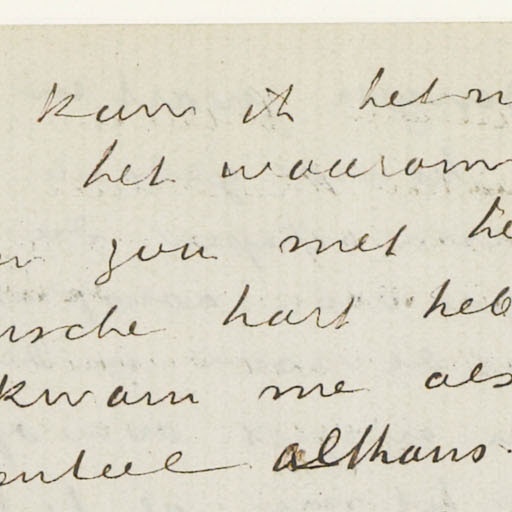 kan ik het n
het waarom
zou met he
ische hart heb
kwam me als
althans